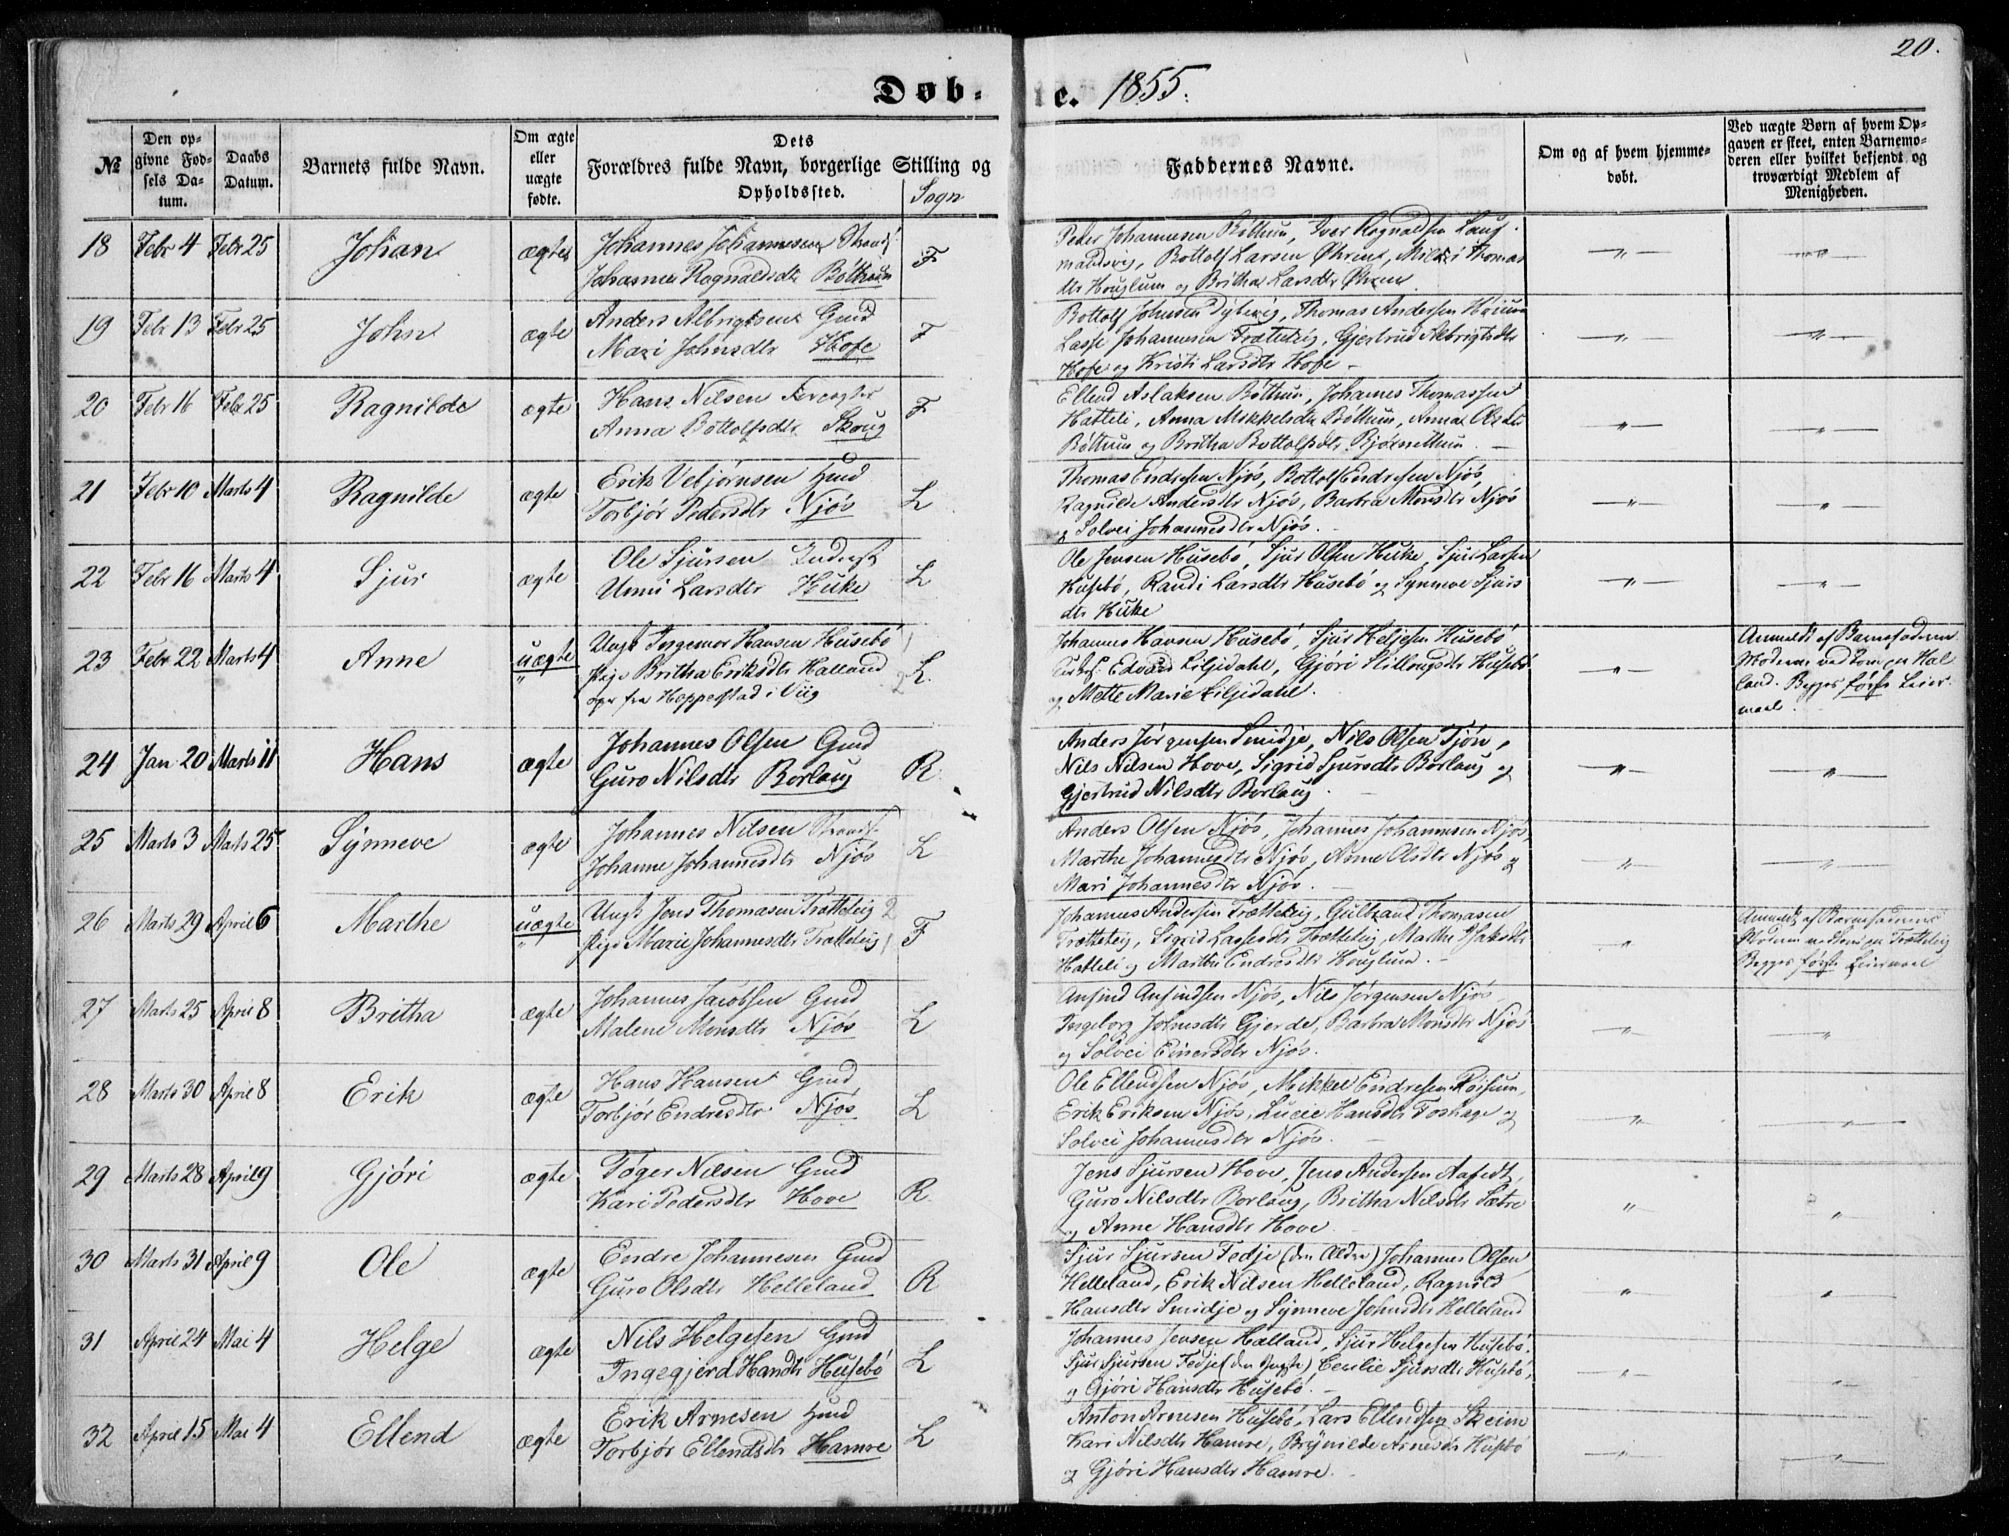 20.
Døb- te. 1855.
№
Den opgivne Fødsels Datum.
Daabs Datum.
Barnets fulde Navn.
Om ægte eller uægte fødte.
Dets Forældres fulde Navn, borgerlige Stilling og Opholdssted.
Sogn
Faddernes Navne.
Om og af hvem hjemmedøbt.
Ved uægte Børn af hvem Opgaven er skeet, enten Barnemoderen eller hvilket bekjendt og troværdigt Medlem af Menigheden.
18 Febr 4 Febr 25 Johan ægte Johannes Johannesen Strands. F Peder Johannesen Bøthun, Iver Ragnaldsen Laug-
Johanne Ragnaldsdtr Bøthun maldsvig, Bottolf Larsen Øhren, Thomas
dtr Houglum og Britha Larsdtr Øhren.
19 Febr 13 Febr 25 John ægte Anders Albrigtsen Gmd F Bottolf Johnsen Dybevig, Thomas Andersen
Mari Johnsdtr Hofe Lasse Johannesen Trætteteig, Gjertrud Albrigtsdtr
Hofe og Kristi Larsdtr Hofe –
20 Febr 16 Febr 25 Ragnilde ægte Hans Nilsen F Ellend Aslaksen Bøthun, Johannes Thomassen
Anna Bottolfsdtr Skoug Hatleli, Anna Mikkelsdtr Bøthun, Anna Olsdtr
Bøthun og Britha Bottolfsdtr Bjørnethun. –
21 Febr 10 Marts 4 Ragnilde ægte Erik Vebjørnsen Hmd L Thomas Endresen Njøs, Bottolf Endresen Njøs,
Torbjør Pedersdtr Njøs Ragnilde Andersdtr Njøs, Barbra Monsdtr Njøs
og Solvei Johannesdtr Njøs. –
22 Febr 16 Marts 4 Sjur ægte Ole Sjursen Inderst L Ole Jensen Husebø, Sjur Olsen Huke, Sjur Larsen
Unni Larsdtr Huke Husebø, Randi Larsdtr Husebø og Synneve Sjurs
dtr Huke
23 Febr 22 Marts 4 Anne uægte Ungk Torgemor Hansen Husebø 1 L. Johannes Hansen Husebø, Sjur Helgesen Husebø
Pige Britha Eriksdtr Halland 2 Edvard Liljedahl, Gjøri Husebø
opr fra Hoppestad i Viig og Mette Marie Liljedahl.
Anmeldt af Barnefaderen
Moderen vedkom en Hal
land. Begges første Leier
maal.
24 Jan 20 Marts 11 Hans ægte Johannes Olsen Gmd R Anders Jørgensen Smidje, Nils Olsen Tjøn,
Guro Nilsdtr Borlaug Nils Nilsen Hove, Sigrid Sjursdtr Borlaug og
Gjertrud Nilsdtr Borlaug.
25 Marts 3 Marts 25 Synneve ægte Johannes Nilsen Strands. L Anders Olsen Njøs, Johannes Johannesen Njøs,
Johanne Johannesdtr Njøs Marthe Johannesdtr Njøs, Anne Olsdtr Njøs og
Mari Johannesdtr Njøs. –
26 Marts 29 April 6 Marthe uægte Ungk Jens Thomasen Trætteteig 2 F Johannes Andersen Trætteteig, Gulbrand Thomasen
Pige Marie Johannesdtr Trætteteig 1 Trætteteig, Sigrid Lassesdtr Trætteteig, Marthe Isaksdtr
Hatleli og Martha Endresdtr Houglum. –
Anmeldt af Barnefaderen
Moderen vedkom en Trætteteig
Begges første Leiermaal
27 Marts 25 April 8 Britha ægte Johannes Jacobsen Gmd L Ansind Ansindsen Njøs, Nils Jørgensen Njøs
Malene Monsdtr Njøs Ingeborg Johnsdtr Gjerde, Barbra Monsdtr Njøs
og Solvei Einersdtr Njøs.
28 Marts 30 April 8 Erik ægte Hans Hansen Gmd L Ole Ellendsen Njøs, Mikkel Endresen Røisum,
Torbjør Endresdtr Njøs Erik Eriksen Njøs, Lucie Hansdtr Foshage og
Solvei Johannesdtr Njøs. –
29 Marts 28 April 9 Gjøri ægte Tøger Nilsen Gmd R Jens Sjursen Hove, Jens Andersen Aafedt,
Kari Pedersdtr Hove Guro Nilsdtr Borlaug, Britha Nilsdtr Sætre
og Anne Hansdtr Hove.
30 Marts 31 April 9 Ole ægte Endre Johannesen Gmd R Sjur Sjursen Fedje (den Ældre) Johannes Olsen
Guro Olsdtr Helleland Helleland, Erik Nilsen Helleland, Ragnild
Hansdtr Smidje og Synneve Johnsdtr Helleland
31 April 24 Mai 4 Helge ægte Nils Helgesen Gmd L Johannes Jensen Halland, Sjur Helgesen Husebø,
Ingegjerd Hansdtr Husebø Sjur Sjursen Fedje (den Yngste) Cecilie Sjursdtr Husebø,
og Gjøri Hansdtr Husebø. –
32 April 15 Mai 4 Ellend ægte Erik Arnesen Hmd L Anton Arnesen Husebø, Lars Ellendsen Skeim
Torbjør Ellendsdtr Hamre Kari Nilsdtr Hamre, Brynilde Arnesdtr Husebø
og Gjøri Hansdtr Hamre.